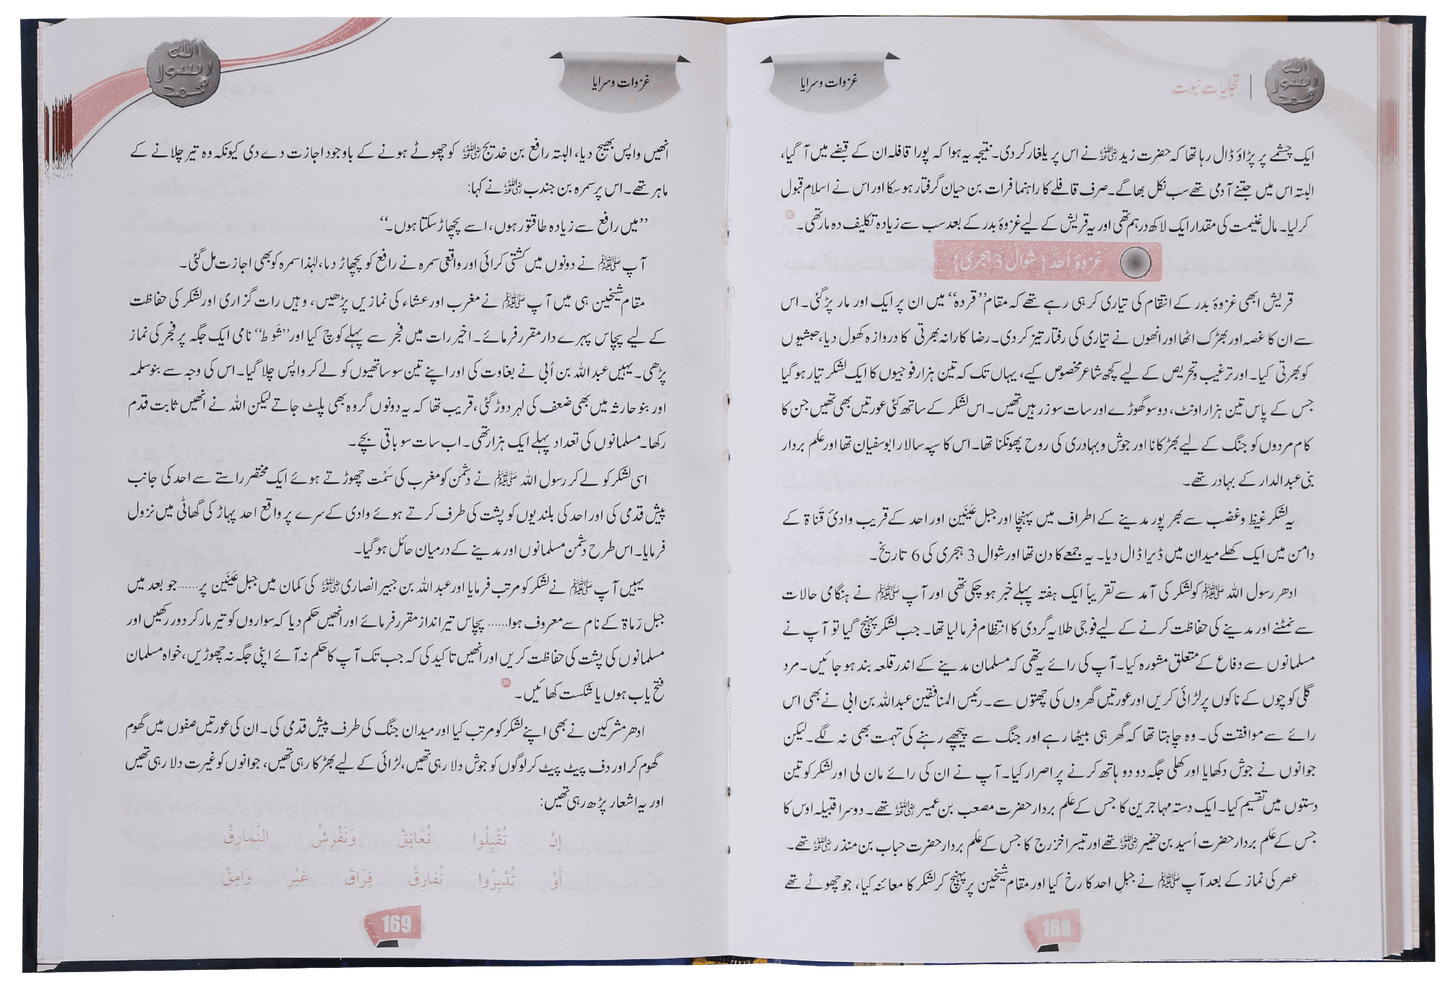 تجلیات نبوت
غزوات و سرایا
ایک چشمے پر پڑاؤ ڈال رہا تھا کہ حضرت زید رضی اللہ عنہ نے اس پر یلغار کر دی۔ نتیجہ یہ ہوا کہ پورا قافلہ ان کے قبضے میں آ گیا،
البتہ اس میں جتنے آدمی تھے سب نکل بھاگے۔ صرف قافلے کا راہنما فرات بن حیان گرفتار ہو سکا اور اس نے اسلام قبول
کر لیا۔ مال غنیمت کی مقدار ایک لاکھ درہم تھی اور یہ قریش کے لیے غزوۂ بدر کے بعد سب سے زیادہ تکلیف دہ مار تھی۔
غزوۂ اُحد (شوال 3 ہجری)
قریش ابھی غزوۂ بدر کے انتقام کی تیاری کر ہی رہے تھے کہ مقام ”قردہ“ میں ان پر ایک اور مار پڑ گئی۔ اس
سے ان کا غصہ اور بھڑک اٹھا اور انھوں نے تیاری کی رفتار تیز کر دی۔ رضا کارانہ بھرتی کا دروازہ کھول دیا، حبشیوں
کو بھرتی کیا۔ اور ترغیب و تحریص کے لیے کچھ شاعر مخصوص کیے، یہاں تک کہ تین ہزار فوجیوں کا ایک لشکر تیار ہو گیا
جس کے پاس تین ہزار اونٹ، دو سو گھوڑے اور سات سو زرہیں تھیں۔ اس لشکر کے ساتھ کئی عورتیں بھی تھیں جن کا
کام مردوں کو جنگ کے لیے بھڑکانا اور جوش و بہادری کی روح پھونکنا تھا۔ اس کا سپہ سالار ابوسفیان تھا اور علم بردار
بنی عبدالدار کے بہادر تھے۔
یہ لشکر غیظ و غضب سے بھرپور مدینے کے اطراف میں پہنچا اور جبل عَینَین اور احد کے قریب وادیٔ قَناۃ کے
دامن میں ایک کھلے میدان میں ڈیرا ڈال دیا۔ یہ جمعے کا دن تھا اور شوال 3 ہجری کی 6 تاریخ۔
ادھر رسول اللہ ﷺ کو لشکر کی آمد سے تقریباً ایک ہفتہ پہلے خبر ہو چکی تھی اور آپ ﷺ نے ہنگامی حالات
سے نمٹنے اور مدینے کی حفاظت کرنے کے لیے فوجی طلایہ گردی کا انتظام فرما لیا تھا۔ جب لشکر پہنچ گیا تو آپ نے
مسلمانوں سے دفاع کے متعلق مشورہ کیا۔ آپ کی رائے یہ تھی کہ مسلمان مدینے کے اندر قلعہ بند ہو جائیں۔ مرد
گلی کوچوں کے ناکوں پر لڑائی کریں اور عورتیں گھروں کی چھتوں سے۔ رئیس المنافقین عبداللہ بن ابی نے بھی اس
رائے سے موافقت کی۔ وہ چاہتا تھا کہ گھر ہی بیٹھا رہے اور جنگ سے پیچھے رہنے کی تہمت بھی نہ لگے۔ لیکن
جوانوں نے جوش دکھایا اور کھلی جگہ دو دو ہاتھ کرنے پر اصرار کیا۔ آپ نے ان کی رائے مان لی اور لشکر کو تین
دستوں میں تقسیم کیا۔ ایک دستہ مہاجرین کا جس کے علم بردار حضرت مصعب بن عمیر رضی اللہ عنہ تھے۔ دوسرا قبیلہ اوس کا
جس کے علم بردار حضرت اُسید بن حضیر رضی اللہ عنہ تھے اور تیسرا خزرج کا جس کے علم بردار حضرت حباب بن منذر رضی اللہ عنہ تھے۔
عصر کی نماز کے بعد آپ ﷺ نے جبل احد کا رخ کیا اور مقام شَیخین پر پہنچ کر لشکر کا معائنہ کیا، جو چھوٹے تھے
168
غزوات و سرایا
انھیں واپس بھیج دیا، البتہ رافع بن خدیج رضی اللہ عنہ کو چھوٹے ہونے کے باوجود اجازت دے دی کیونکہ وہ تیر چلانے کے
ماہر تھے۔ اس پر سمرہ بن جندب رضی اللہ عنہ نے کہا:
”میں رافع سے زیادہ طاقتور ہوں، اسے پچھاڑ سکتا ہوں۔“
آپ ﷺ نے دونوں میں کشتی کرائی اور واقعی سمرہ نے رافع کو پچھاڑ دیا، لہٰذا سمرہ کو بھی اجازت مل گئی۔
مقام شیخین ہی میں آپ ﷺ نے مغرب اور عشاء کی نمازیں پڑھیں، وہیں رات گزاری اور لشکر کی حفاظت
کے لیے پچاس پہرے دار مقرر فرمائے۔ اخیر رات میں فجر سے پہلے کوچ کیا اور ”شَوط“ نامی ایک جگہ پر فجر کی نماز
پڑھی۔ یہیں عبداللہ بن اُبی نے بغاوت کی اور اپنے تین سو ساتھیوں کو لے کر واپس چلا گیا۔ اس کی وجہ سے بنو سلمہ
اور بنو حارثہ میں بھی ضعف کی لہر دوڑ گئی، قریب تھا کہ یہ دونوں گروہ بھی پلٹ جاتے لیکن اللہ نے انھیں ثابت قدم
رکھا۔ مسلمانوں کی تعداد پہلے ایک ہزار تھی۔ اب سات سو باقی بچے۔
اسی لشکر کو لے کر رسول اللہ ﷺ نے دشمن کو مغرب کی سَمْت چھوڑتے ہوئے ایک مختصر راستے سے احد کی جانب
پیش قدمی کی اور احد کی بلندیوں کو پشت کی طرف کرتے ہوئے وادی کے سرے پر واقع احد پہاڑ کی گھاٹی میں نزول
فرمایا۔ اس طرح دشمن مسلمانوں اور مدینے کے درمیان حائل ہو گیا۔
یہیں آپ ﷺ نے لشکر کو مرتب فرمایا اور عبداللہ بن جبیر انصاری رضی اللہ عنہ کی کمان میں جبل عَینَین پر...... جو بعد میں
جبل رَماۃ کے نام سے معروف ہوا...... پچاس تیر انداز مقرر فرمائے اور انھیں حکم دیا کہ سواروں کو تیر مار کر دور رکھیں اور
مسلمانوں کی پشت کی حفاظت کریں اور انھیں تاکید کی کہ جب تک آپ کا حکم نہ آئے اپنی جگہ نہ چھوڑیں، خواہ مسلمان
فتح یاب ہوں یا شکست کھائیں۔
ادھر مشرکین نے بھی اپنے لشکر کو مرتب کیا اور میدان جنگ کی طرف پیش قدمی کی۔ ان کی عورتیں صفوں میں گھوم
گھوم کر اور دف پیٹ پیٹ کر لوگوں کو جوش دلا رہی تھیں، لڑائی کے لیے بھڑکا رہی تھیں، جوانوں کو غیرت دلا رہی تھیں
اور یہ اشعار پڑھ رہی تھیں:
إِنْ تُقْبِلُوا نُعَانِقْ وَنَفْرِشُ النَّمَارِقْ
أَوْ تُدْبِرُوا نُفَارِقْ فِرَاقَ غَيْرِ وَامِقْ
169